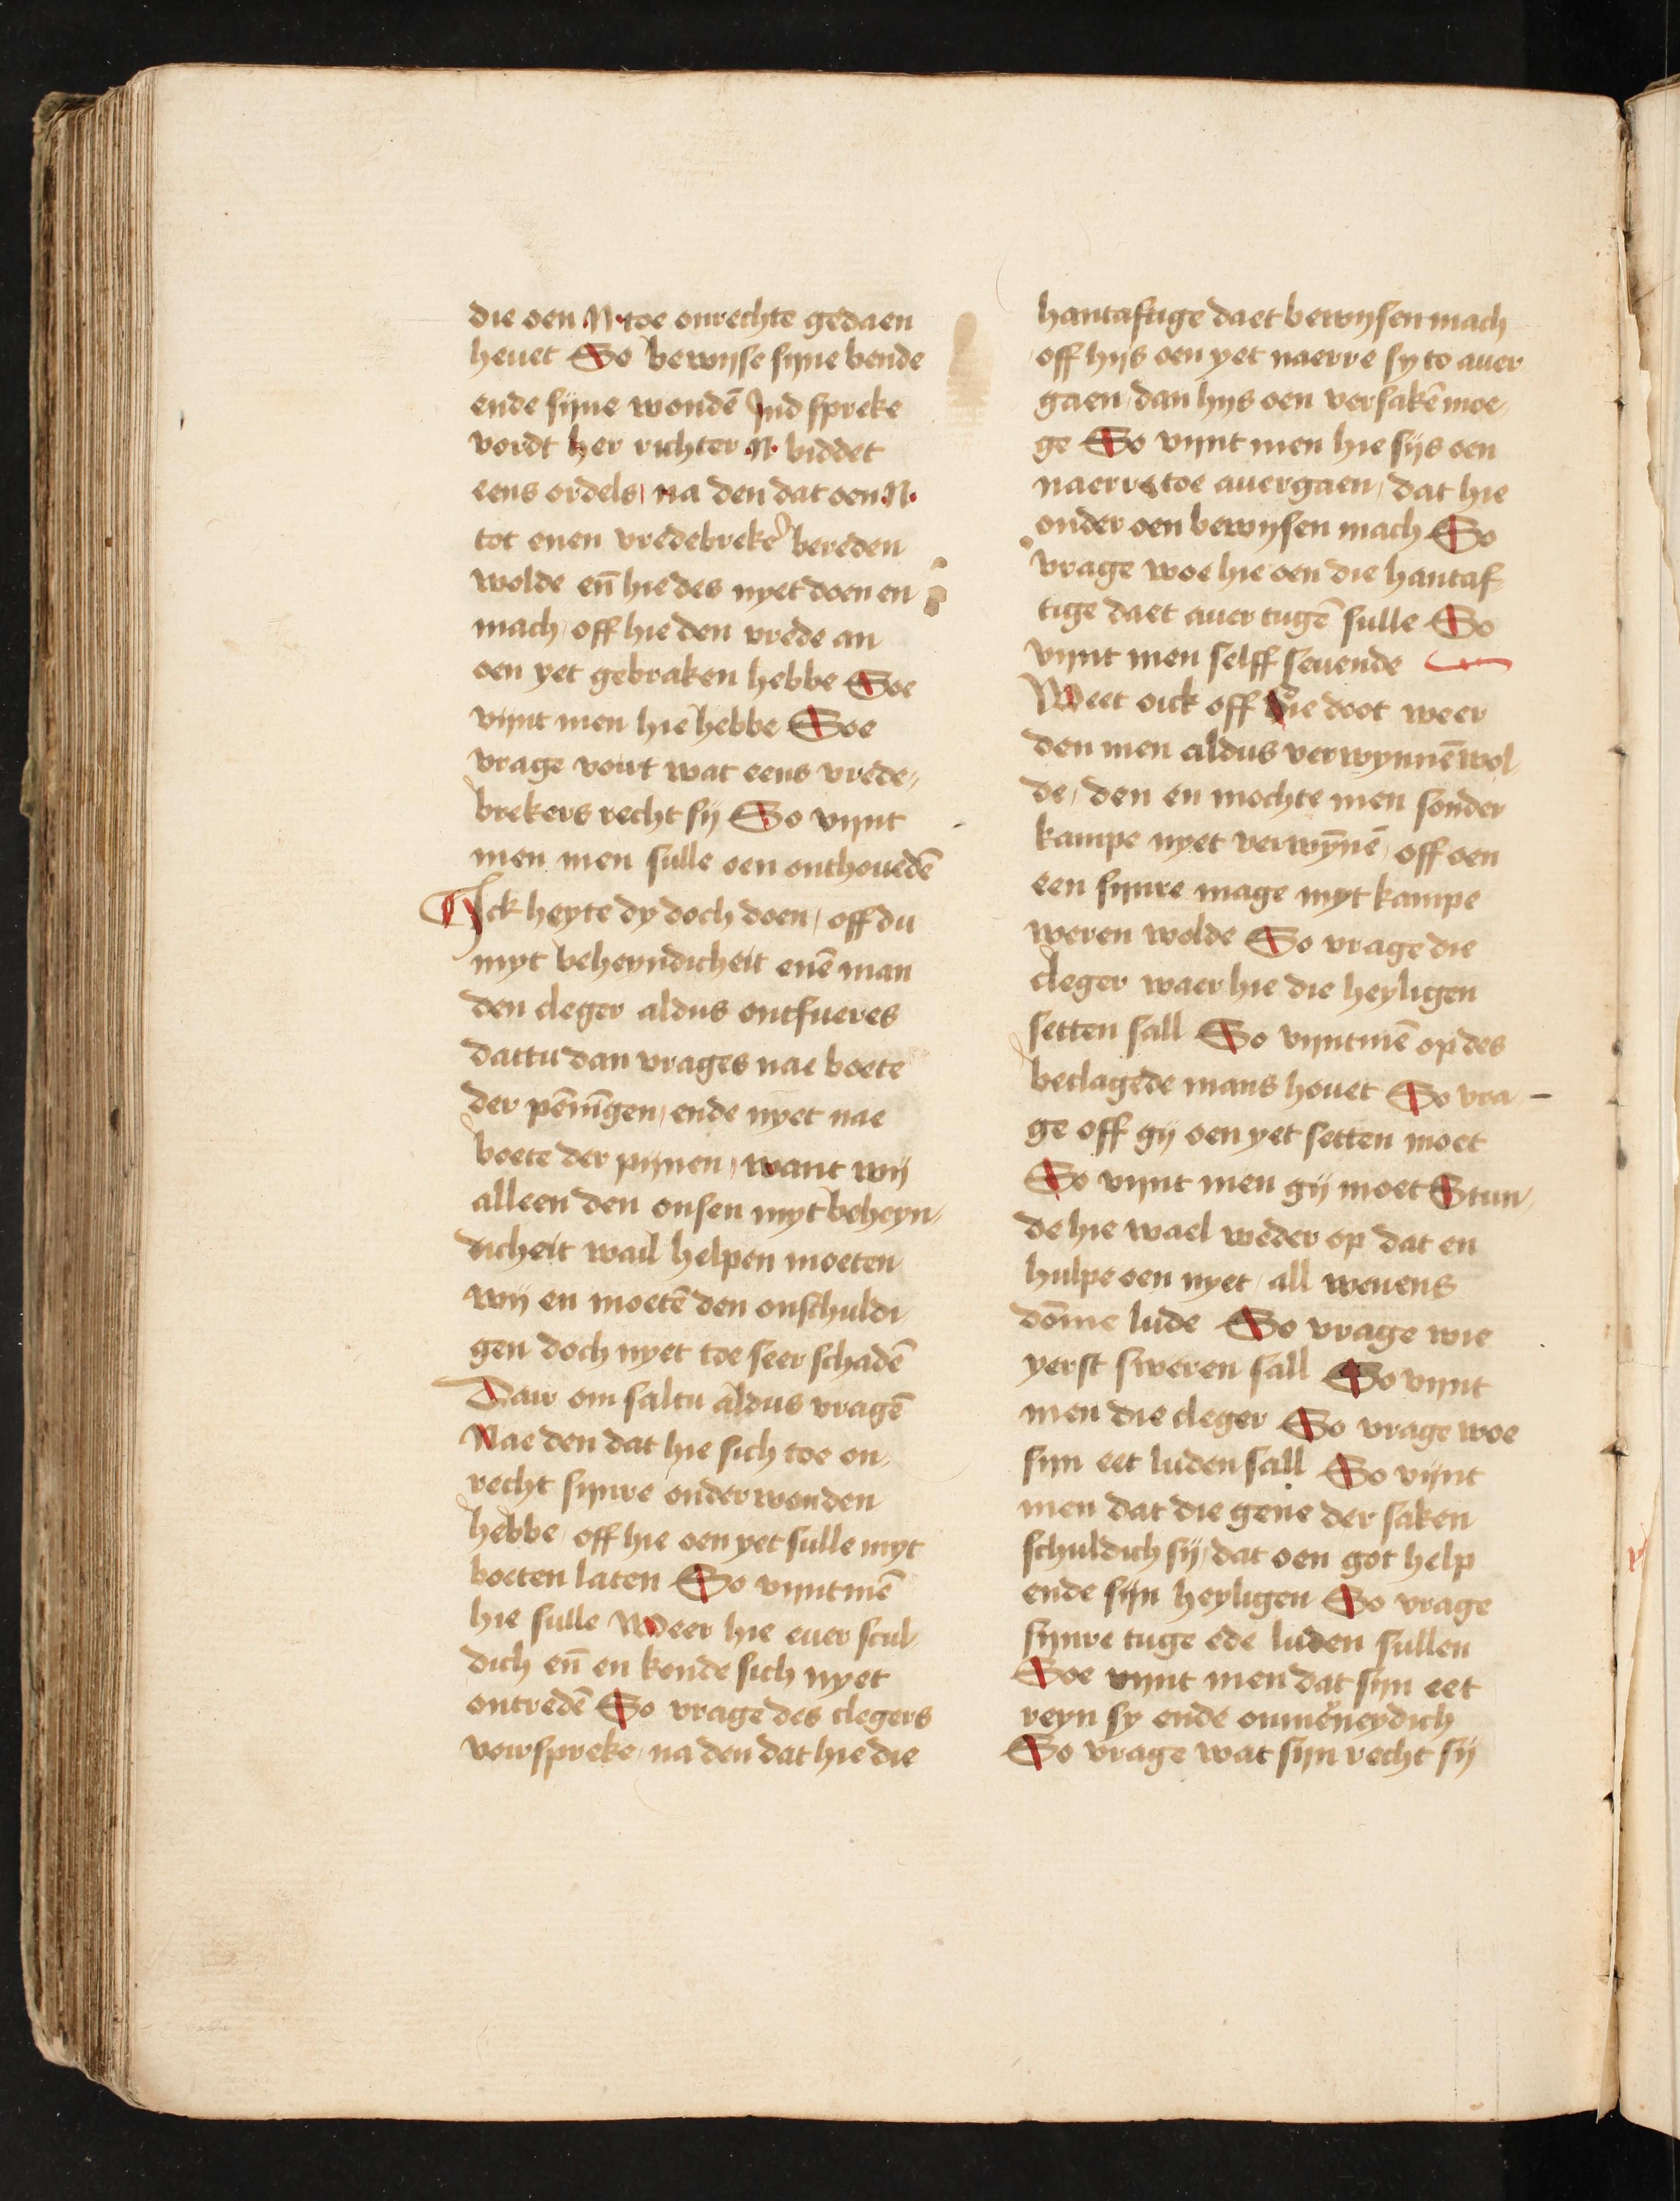 die oen .N. toe onrechte gedaen
heuet So bewijse sijne bende
ende sijne wondē Jnd spreke
vordt her richter .N. biddet
eens ordels, na den dat oen .N.
tot enen vredebrekeʳ bereden
wolde eñ hie des nyet doen en
mach, off hie den vrede an
oen yet gebraken hebbe Soe
vijnt men hie hebbe Soe
vrage vort wat eens vrede,,
brekers recht sij So vijnt
men men sulle oen onthouedē
Jck heyte dy doch doen, off du
myt beheyndicheit enē man
den cleger aldus ontfueres
dattu dan vrages nae boete
der pēnīgen, ende nyet nae
boete der pijnen, want wij
alleen den onsen myt beheyn,,
dicheit wail helpen moeten
wij en moetē den onschuldi,
gen doch nyet toe seer schadē
Dair om saltu aldus vragē
Nae den dat hie sich toe on,
recht sijnre onderwonden
hebbe, off hie oen yet sulle myt
boeten laten So vijntmē
hie sulle Weer hie euer scul,
dich eñ en konde sich nyet
ontredē So vrage des clegers
vorspreke, na den dat hie die
hantaftige daet bewijsen mach
off hijs oen yet naerre sy to auer
gaen, dan hijs oen versakē moe,
ge So vijnt men hie sijs oen
naerre toe auergaen, dat hie
onder oen bewijsen mach So
vrage woe hie oen die hantaf,,
tige daet auer tugē sulle So
vijnt men selff seuende
Weet oick off die doot weer
den men aldus verwynnē wol,
de, den en mochte men sonder
kampe nyet verwȳnē, off oen
een sijnre mage myt kampe
weren wolde So vrage die
cleger waer hie die heyligen
setten sall So vijntmē op des
beclagede mans houet So vra-
ge off gij oen yet setten moet
So vijnt men gij moet Stun,
de hie wael weder op dat en
hulpe oen nyet, all weuens
dōme lude So vrage wie
yerst sweren sall So vijnt
men die cleger So vrage woe
sijn eet luden sall So vijnt
men dat die gene der saken
schuldich sij, dat oen got help
ende sijn heyligen So vrage
sijnre tuge ede luden sullen
Soe vijnt men dat sijn eet
reyn sy ende onmēneydich
So vrage wat sijn recht sij